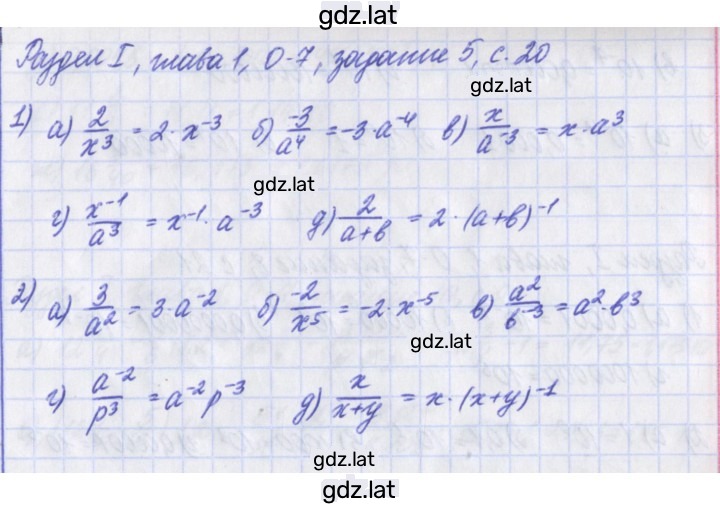 gdz.lat
Раздел I, глава 1, О-7, задание 5, с. 20
gdz.lat
1) а) 2/x³ = 2·x⁻³ б) -3/a⁴ = -3·a⁻⁴ в) x/a⁻³ = x·a³
gdz.lat
г) x⁻¹/a³ = x⁻¹·a⁻³ д) 2/(a+b) = 2·(a+b)⁻¹
2) а) 3/a² = 3·a⁻² б) -2/x⁵ = -2·x⁻⁵ в) a²/b⁻³ = a²·b³
gdz.lat
г) a⁻²/p³ = a⁻²p⁻³ д) x/(x+y) = x·(x+y)⁻¹
gdz.lat
gdz.lat